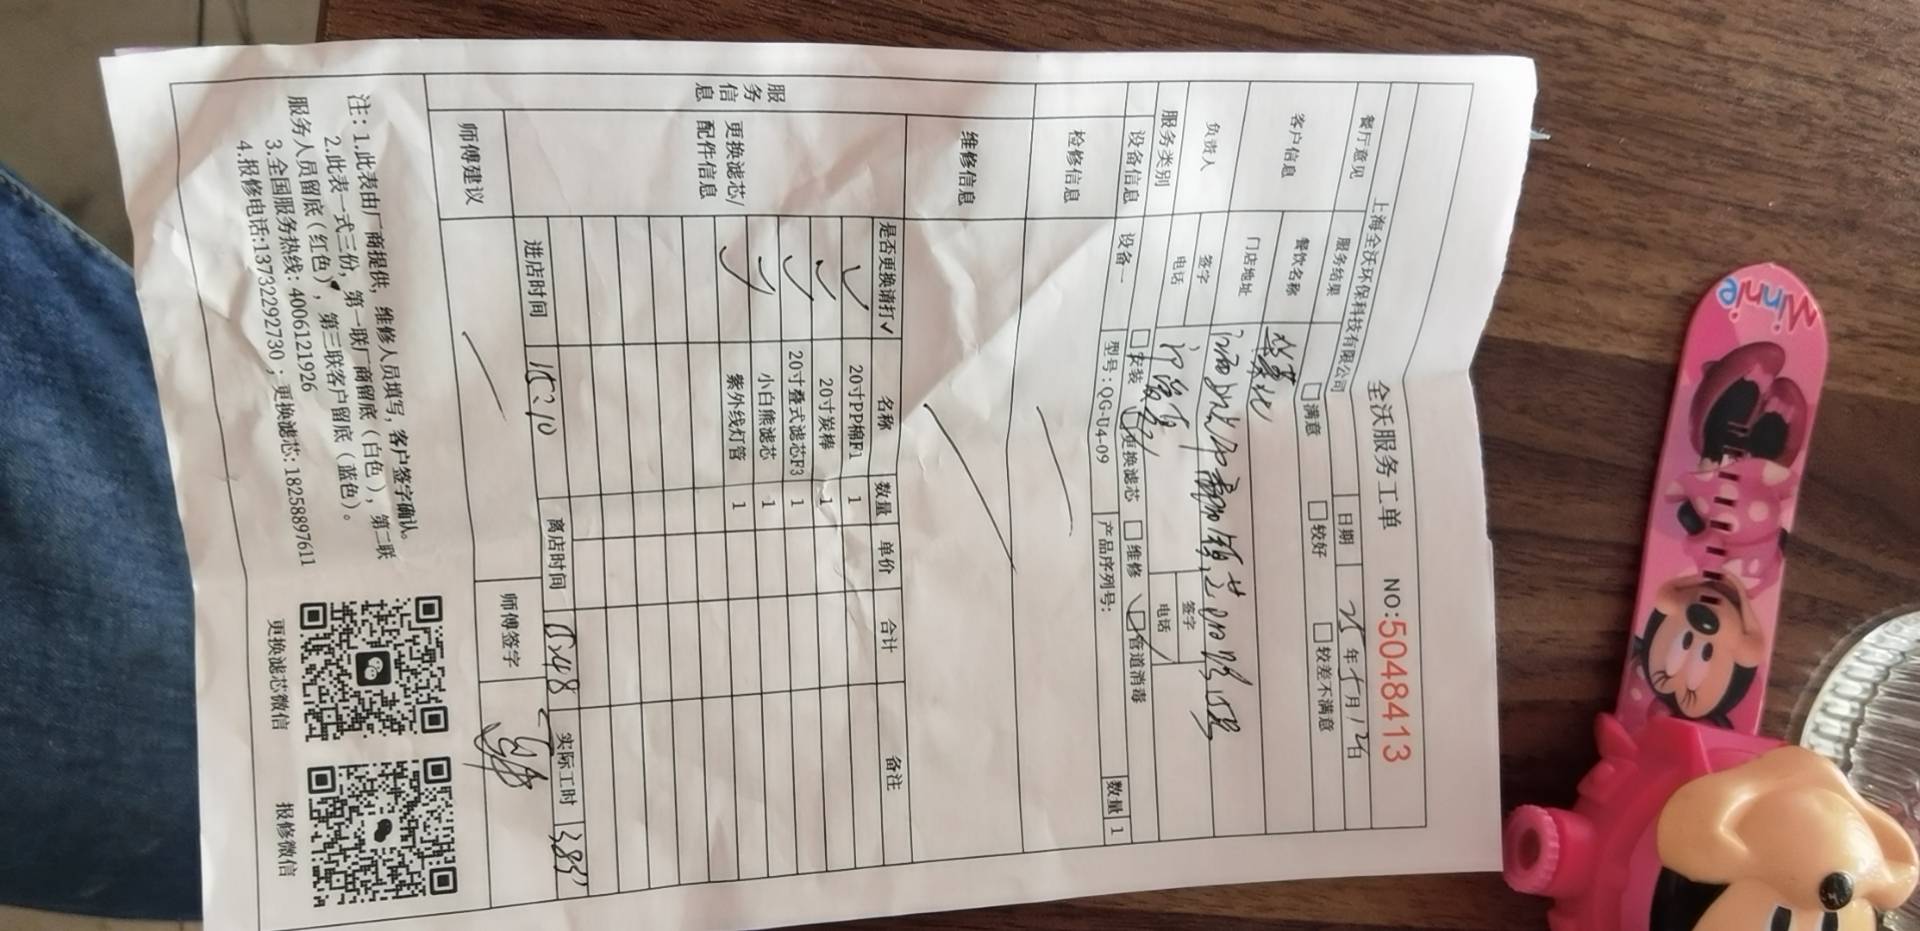 全沃服务工单 NO:5048413
上海全沃环保科技有限公司 日期 25年 月12日
餐厅意见 服务结果 □满意 □较好 □较差不满意
客户信息 餐饮名称
门店地址
负责人 签字 签字
电话 电话
服务类别 □安装 更换滤芯 □维修 □管道消毒
设备信息 设备一 型号:QG-U4-09 产品序列号: 数量 1
检修信息
维修信息
服务信息
更换滤芯/配件信息
是否更换请打✓ 名称 数量 单价 合计 备注
✓ 20寸PP棉F1 1
✓ 20寸炭棒 1
✓ 20寸叠式滤芯F3 1
✓ 小白熊滤芯 1
✓ 紫外线灯管 1
进店时间 15:10 离店时间 15:48 实际工时
师傅建议 师傅签字
注:1.此表由厂商提供,维修人员填写,客户签字确认。
2.此表一式三份,第一联厂商留底(白色),第二联
服务人员留底(红色),第三联客户留底(蓝色)。
3.全国服务热线:4006121926
4.报修电话:13732292730;更换滤芯:18258897611
更换滤芯微信 报修微信
Minnie